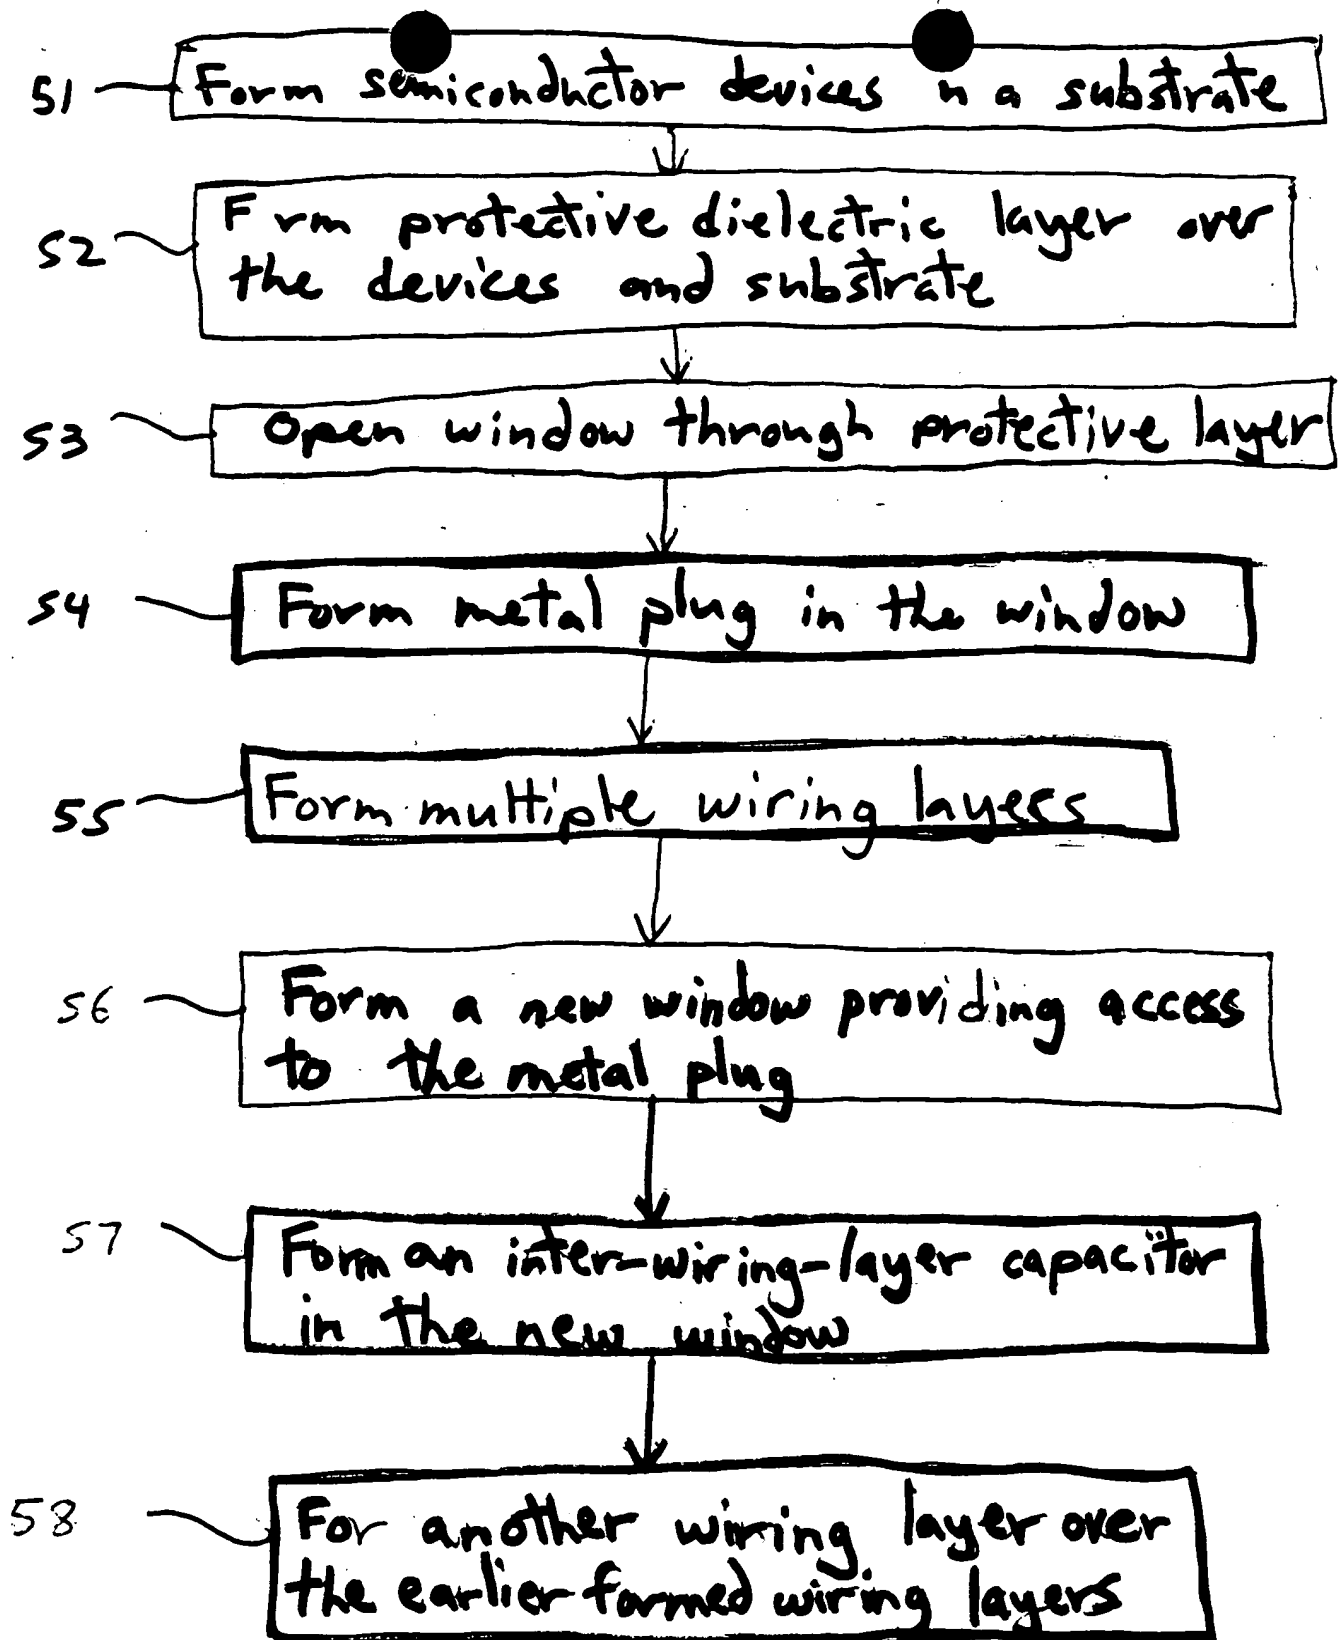 51 Form semiconductor devices n a substrate
52 F rm protective dielectric layer over
the devices and substrate
53 Open window through protective layer
54 Form metal plug in the window
55 Form multiple wiring layers
56 Form a new window providing access
to the metal plug
57 Form an inter-wiring-layer capacitor
in the new window
58 For another wiring layer over
the earlier-formed wiring layers